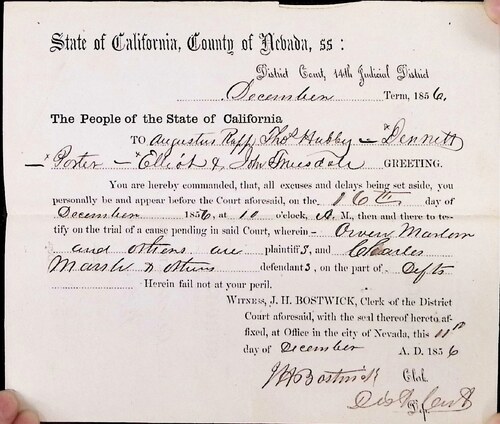 State of California, County of Nevada, ss:
District Court, 14th Judicial District
December Term, 1856,
The People of the State of California
TO Augustus Raff, Thos Hubby — Dennett
— Porter — Elliot & John Truesdale GREETING.
You are hereby commanded, that, all excuses and delays being set aside, you
personally be and appear before the Court aforesaid, on the 16th day of
December 1856, at 10 o'clock, A. M., then and there to tes-
tify on the trial of a cause pending in said Court, wherein - Owen Marlow
and others are plaintiffs, and Charles
Marsh & others defendants, on the part of Defts
Herein fail not at your peril.
WITNESS, J. H. BOSTWICK, Clerk of the District
Court aforesaid, with the seal thereof hereto af-
fixed, at Office in the city of Nevada, this 11th
day of December A. D. 1856
J H Bostwick Clek.
Dist Court